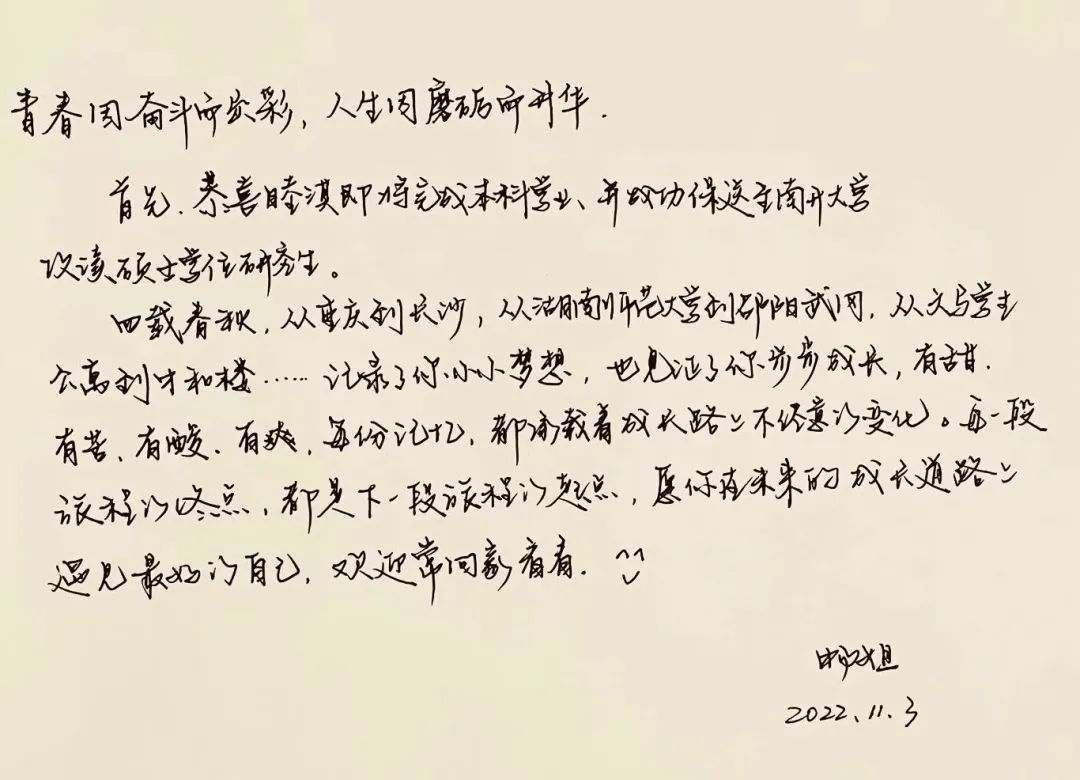 青春因奋斗而出彩，人生因磨砺而升华．
首先、恭喜睦淇即将完成本科学业、并成功保送至南开大学
攻读硕士学位研究生。
四载春秋，从重庆到长沙，从湖南师范大学到邵阳武冈，从文与学生
公寓到才和楼……记录了你小小梦想，也见证了你步步成长，有甜．
有苦、有酸．有爽，每份记忆，都承载着成长路上不经意的变化。每一段
旅程的终点，都是下一段旅程的起点，愿你在未来的成长道路上
遇见最好的自己，欢迎常回家看看．^^
姐
2022、11.3